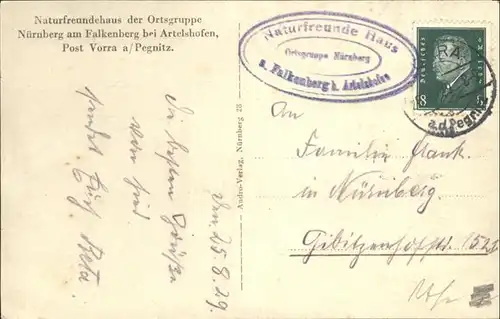 Naturfreundehaus der Ortsgruppe
Nürnberg am Falkenberg bei Artelshofen,
Post Vorra a/Pegnitz.
Naturfreunde Haus
Ortsgruppe Nürnberg
a. Falkenberg b. Artelshofen
Deutsches Reich
8 8
a.d. Pegnitz
Andro-Verlag, Nürnberg 28
den 25.8.29.
Die besten Grüße
von hier
sendet Euch Beta.
An
Familie Frank.
in Nürnberg.
Gibitzenhofstr. 152